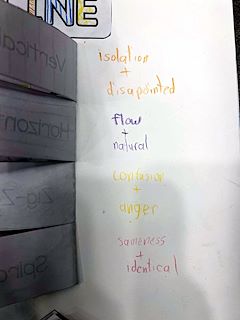 INE
Vertical
Horizont
Zig-Z
Spira
isolation
+
disapointed
flow
+
natural
confusion
+
anger
sameness
+
identical